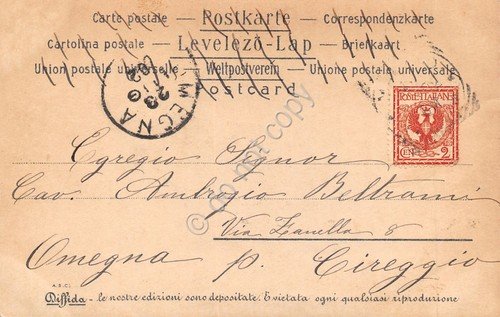 Carte postale - Postkarte - Correspondenzkarte
Cartolina postale - Levelező-Lap - Briefkaart
Union postale universelle - Weltpostverein - Unione postale universale
Postcard
OMEGNA
23
02
POSTE ITALIANE
CENT. 2
Egregio Signor
Cav. Ambrogio Beltrami
Via Zanella 8
Omegna p. Cireggio
A.S.C.
Diffida - le nostre edizioni sono depositate. È vietata ogni qualsiasi riproduzione
© do not copy